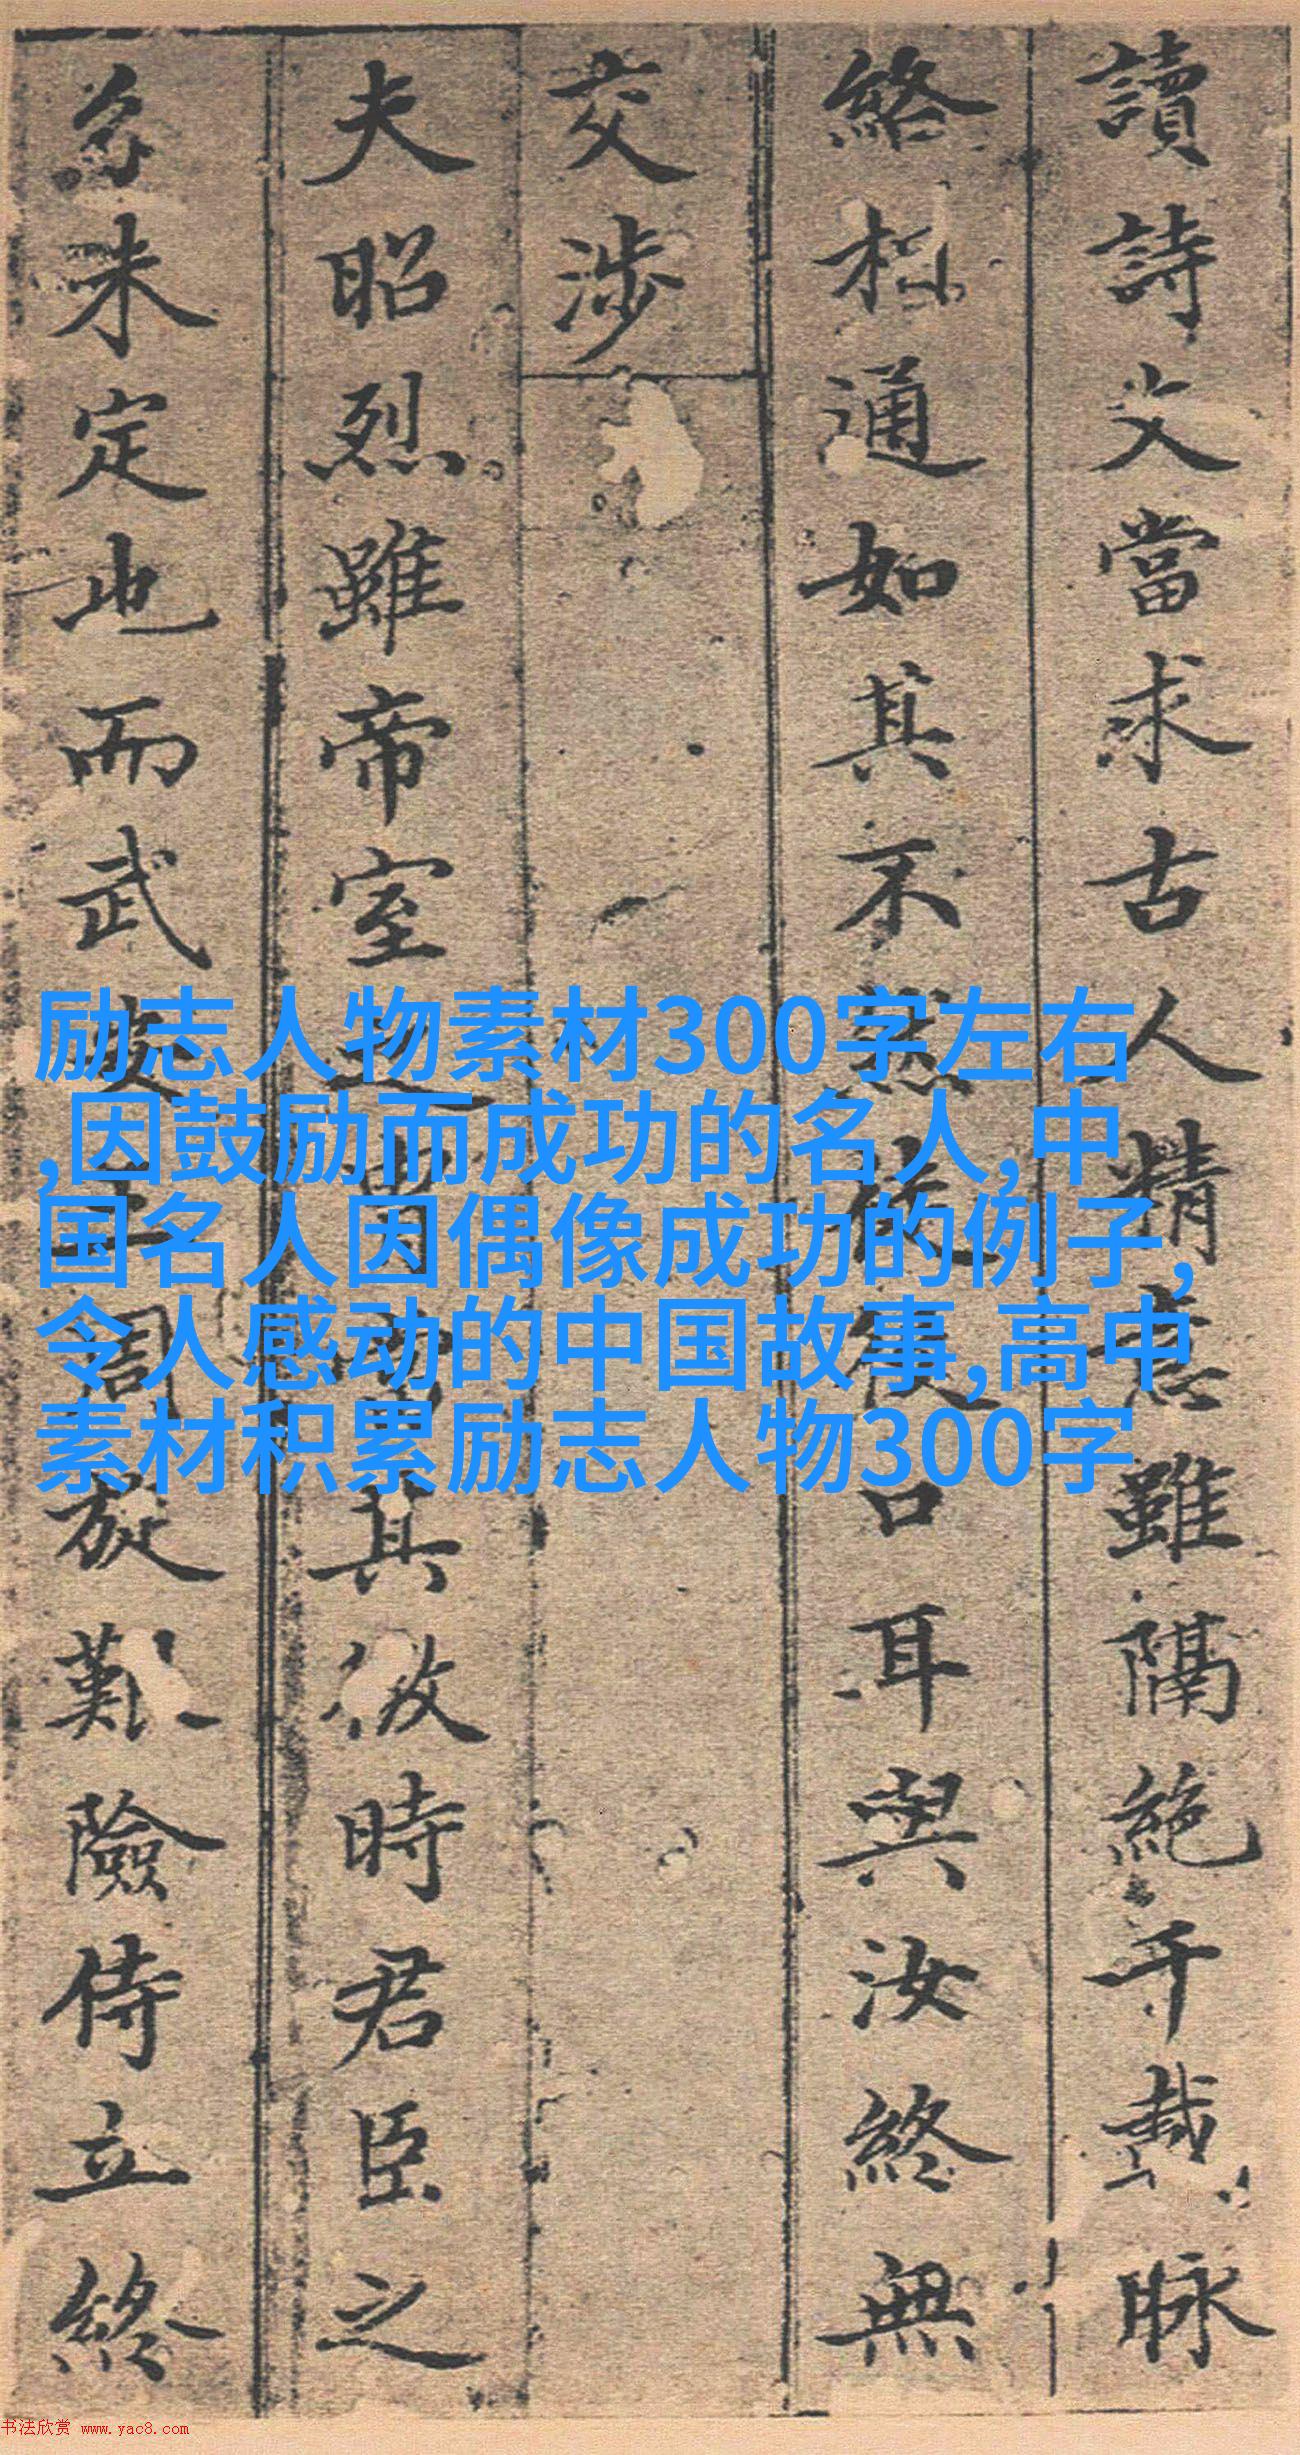 讀詩文當求古人精意雖隔絶千載脉
絡相通如其不然徒
口耳與汝終無
交涉
夫昭烈雖帝室
其微時君臣之
未定也而武
旋艱險侍立終
励志人物素材300字左右
,因鼓励而成功的名人,中
国名人因偶像成功的例子,
令人感动的中国故事,高中
素材积累励志人物300字
书法欣赏 www.yac8.com